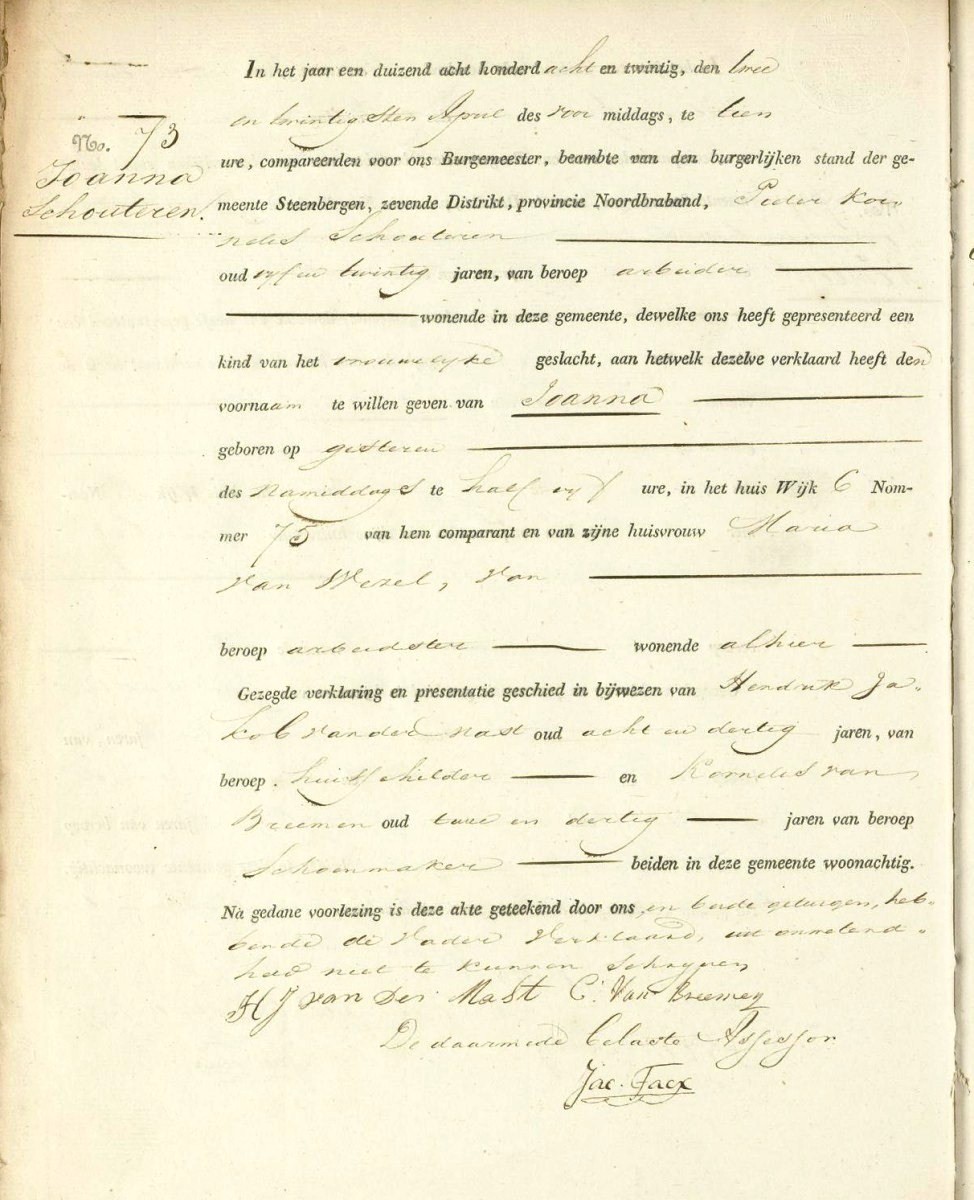 No. 73
Joanna
Schouteren.
In het jaar een duizend acht honderd acht en twintig, den twee
en twintigsten April des voor middags, te tien
ure, compareerden voor ons Burgemeester, beambte van den burgerlijken stand der ge-
meente Steenbergen, zevende Distrikt, provincie Noordbraband, Pieter Kor-
nelis Schouteren
oud vyf en twintig jaren, van beroep arbeider
wonende in deze gemeente, dewelke ons heeft gepresenteerd een
kind van het vrouwelyke geslacht, aan hetwelk dezelve verklaard heeft den
voornaam te willen geven van Joanna
geboren op gisteren
des namiddags te half vyf ure, in het huis Wijk 6 Nom-
mer 75 van hem comparant en van zijne huisvrouw Maria
van Wezel, van
beroep arbeidster wonende alhier
Gezegde verklaring en presentatie geschied in bijwezen van Hendrik Ja-
kob van der Mast oud acht en dertig jaren, van
beroep huisschilder en Kornelis van
Breemen oud twee en dertig jaren van beroep
Schoenmaker beiden in deze gemeente woonachtig.
Nà gedane voorlezing is deze akte geteekend door ons en beide getuigen, heb-
bende de vader verklaard, uit onwetend-
heid niet te kunnen schryven
HJ van Der Mast C. Van Breemen
De daarmede belaste Assessor
Jac. Faex